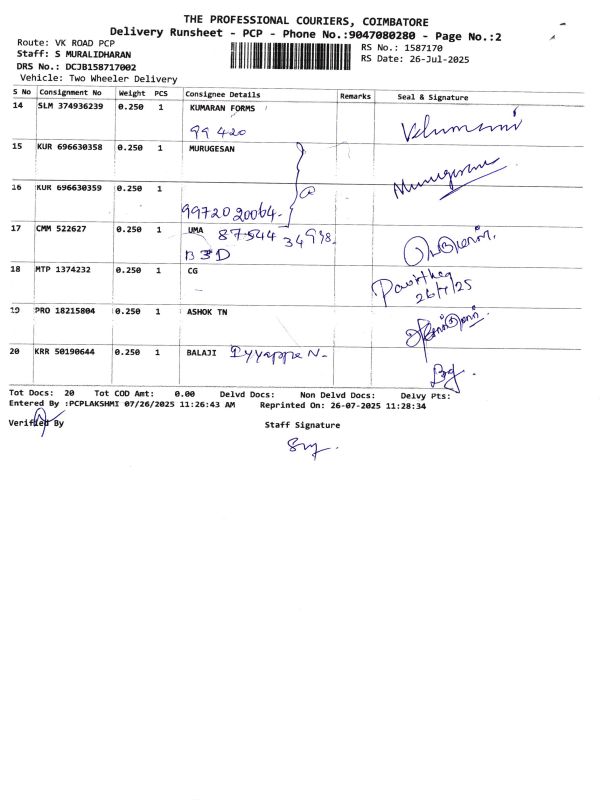 THE PROFESSIONAL COURIERS, COIMBATORE
Delivery Runsheet - PCP - Phone No.:9047080280 - Page No.:2
Route: VK ROAD PCP
RS No.: 1587170
Staff: S MURALIDHARAN
RS Date: 26-Jul-2025
DRS No.: DCJB158717002
Vehicle: Two Wheeler Delivery
S No Consignment No Weight PCS Consignee Details Remarks Seal & Signature
14 SLM 374936239 0.250 1 KUMARAN FORMS
99 420
15 KUR 696630358 0.250 1 MURUGESAN
Murugesan
16 KUR 696630359 0.250 1
99720 20064
17 CMM 522627 0.250 1 UMA 87544 34998
B3D
18 MTP 1374232 0.250 1 CG
26/7/25
19 PRO 18215804 0.250 1 ASHOK TN
20 KRR 50190644 0.250 1 BALAJI Iyyappa N.
Tot Docs: 20 Tot COD Amt: 0.00 Delvd Docs: Non Delvd Docs: Delvy Pts:
Entered By :PCPLAKSHMI 07/26/2025 11:26:43 AM Reprinted On: 26-07-2025 11:28:34
Verified By
Staff Signature